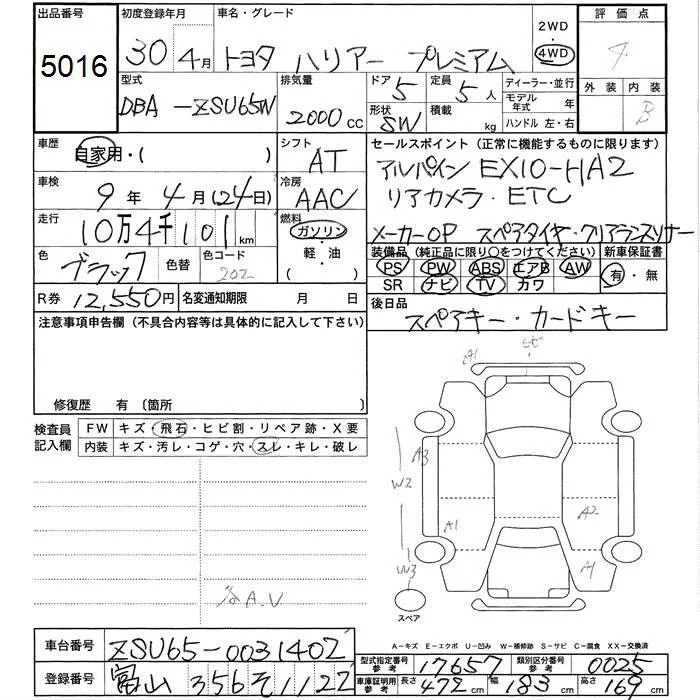 出品番号 初度登録年月 車名・グレード 2WD・4WD 評価点
5016 30 4月 トヨタ ハリアー プレミアム 4
型式 排気量 ドア 定員 ディーラー・並行 外装 内装
DBA-ZSU65W 2000cc 5 5人 モデル年式 年 B
形状 SW 積載 kg ハンドル 左・右
車歴 自家用・( ) シフト AT セールスポイント (正常に機能するものに限ります)
アルパイン EX10-HA2
車検 9年 4月(24日) 冷房 AAC リアカメラ・ETC
走行 10万4千101km 燃料 ガソリン・軽・油 ( ) メーカーOP スペアタイヤ・クリアランスソナー
装備品 (純正品に限り○をつけてください) 新車保証書
色 ブラック 色替 色コード 202 PS PW ABS エアB AW 有・無
SR ナビ TV カワ
R券 12,550円 名変通知期限 月 日 後日品
スペアキー・カードキー
注意事項申告欄 (不具合内容等は具体的に記入して下さい)
修復歴 有 〔箇所
検査員記入欄 FW キズ・飛石・ヒビ割・リペア跡・X要
内装 キズ・汚レ・コゲ・穴・スレ・キレ・破レ
A3
W2
A1 A2
W3 A1
A.V
スペア
A-キズ E-エクボ U-凹み W-補修跡 S-サビ C-腐食 XX-交換済
車台番号 ZSU65-0031402
型式指定番号 参考 17657 類別区分番号 参考 0025
登録番号 富山 356 そ 1122 車庫証明用 参考 長さ 472cm 幅 183cm 高さ 169cm